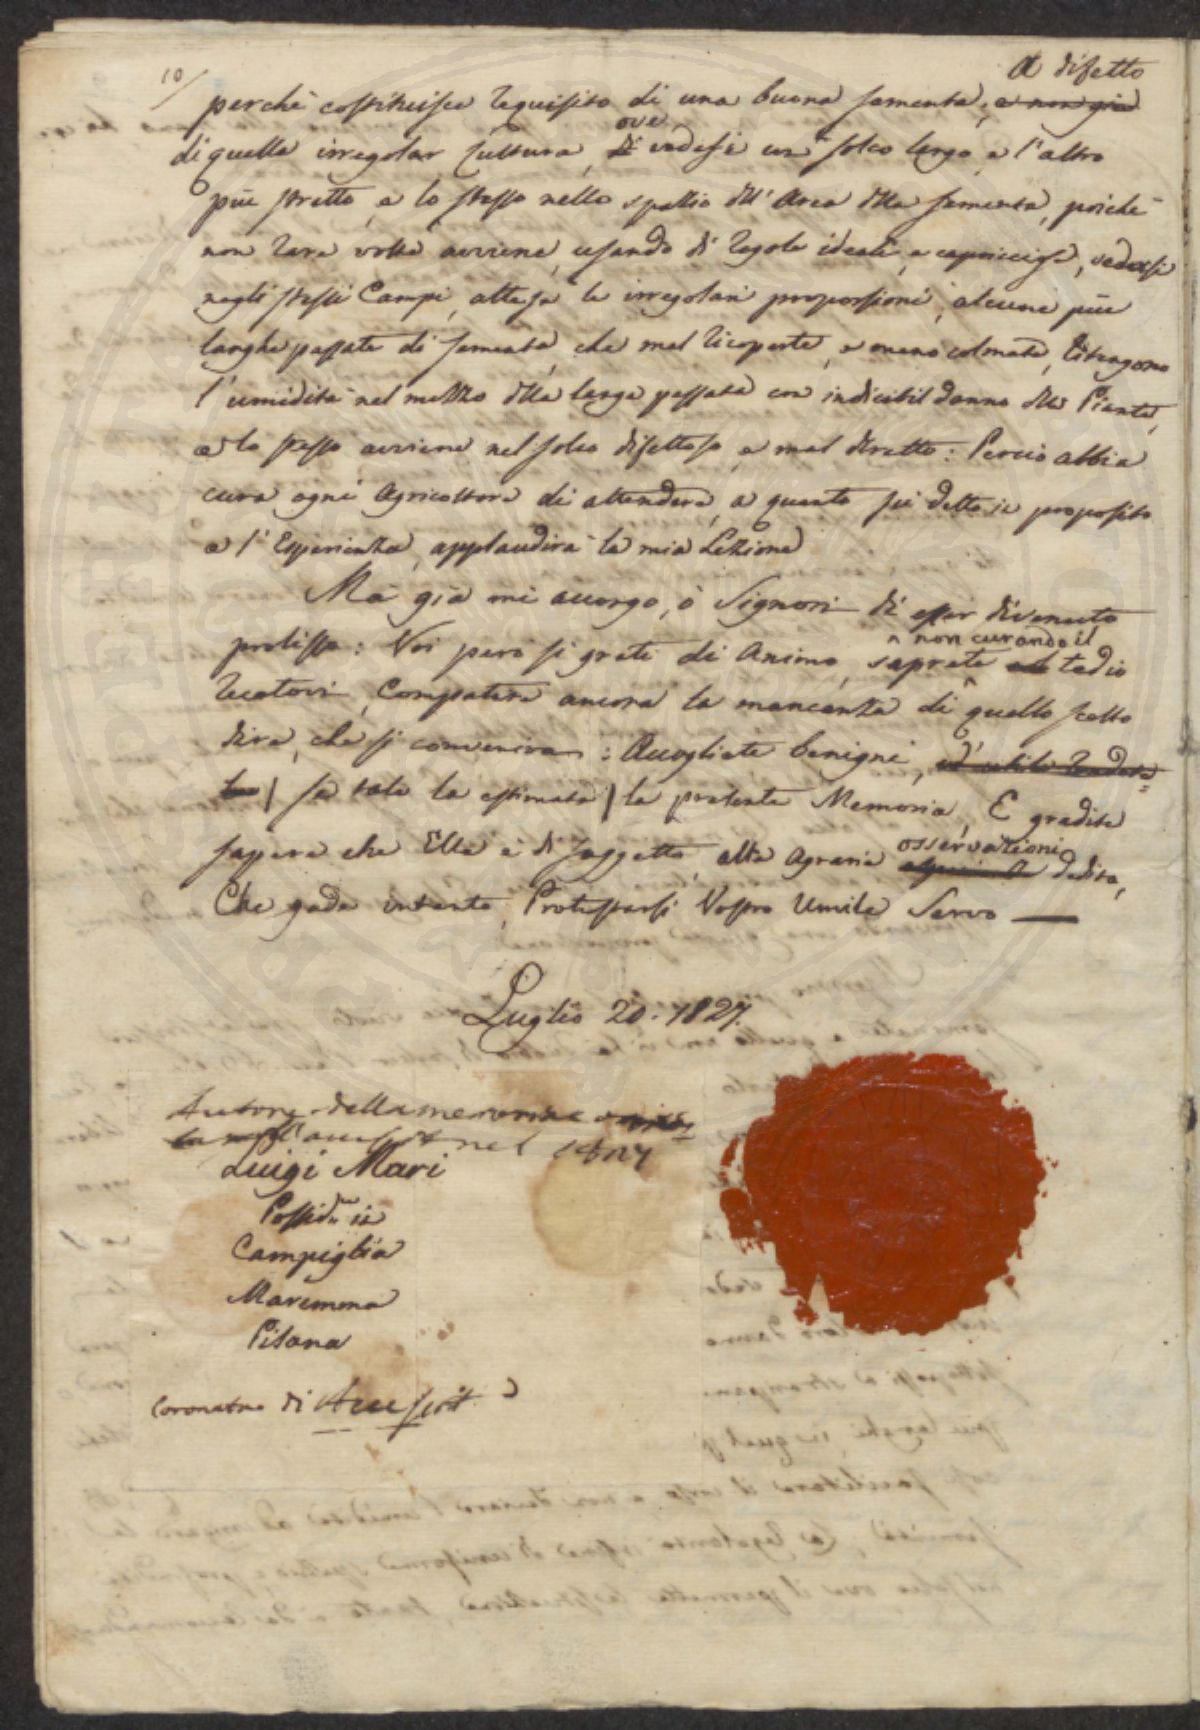 10/
A difetto
perchè costituisce requisito di una buona sementa, e non già
di quella irregolar Cultura, ove di vedesi un solco largo, e l'altro
più stretto, e lo stesso nello spazio dell'Area della sementa, poichè
non rara volta avviene, usando di regole ideali, e capricciose, vedersi
negli stessi Campi, attesa le irregolari proporzioni, alcune più
larghe passate di sementa, che mal ricoperte, e meno colmate, ritengono
l'umidità nel mezzo della larga passata con indicibil danno delle Piante,
e lo stesso avviene nel solco difettoso, e mal diretto: Perciò abbia
cura ogni Agricoltore di attendere, a quanto fù detto in proposito
e l'Esperienza, applaudirà la mia Lezione
Ma già mi accorgo, ò Signori di esser divenuto
prolisso: Voi però sì grati di Animo, saprete e non curando il tedio
recatovi, Compatire ancora la mancanza di quello scelto
dire, che si conveniva: Accogliete benigni,
se tale la estimate la presente Memoria, E gradite
sapere che Ella è di soggetto, alle Agrarie osservazioni dedito,
Che gode intanto, Protestarsi Vostro Umile Servo
Luglio 20. 1827.
Autore della memoria
l'accessit nel 1827
Luigi Mari
Possid.e in
Campiglia
Maremma
Pisana
Coronata di Accessit